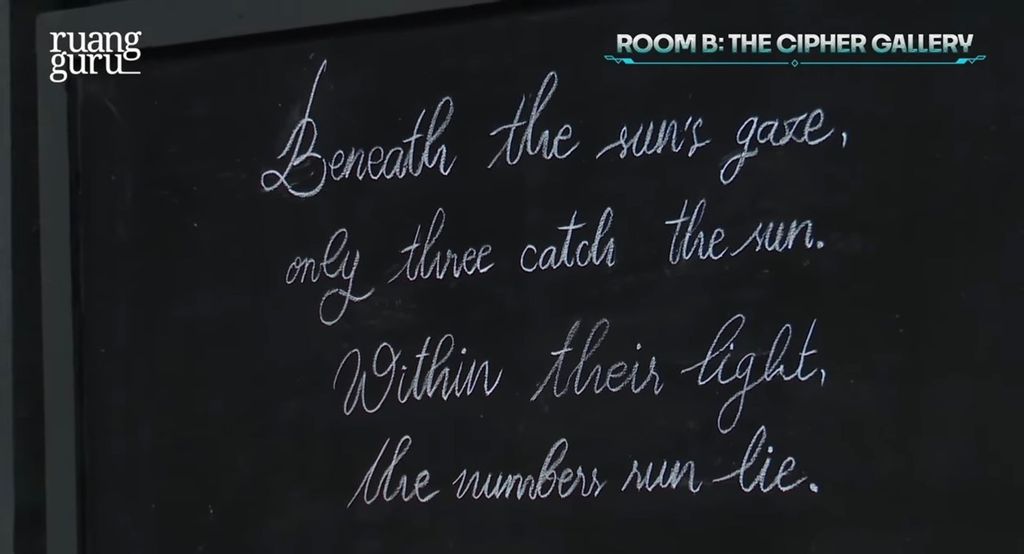 ruang
guru
ROOM B: THE CIPHER GALLERY
Beneath the sun's gaze,
only three catch the sun.
Within their light,
the numbers lie.